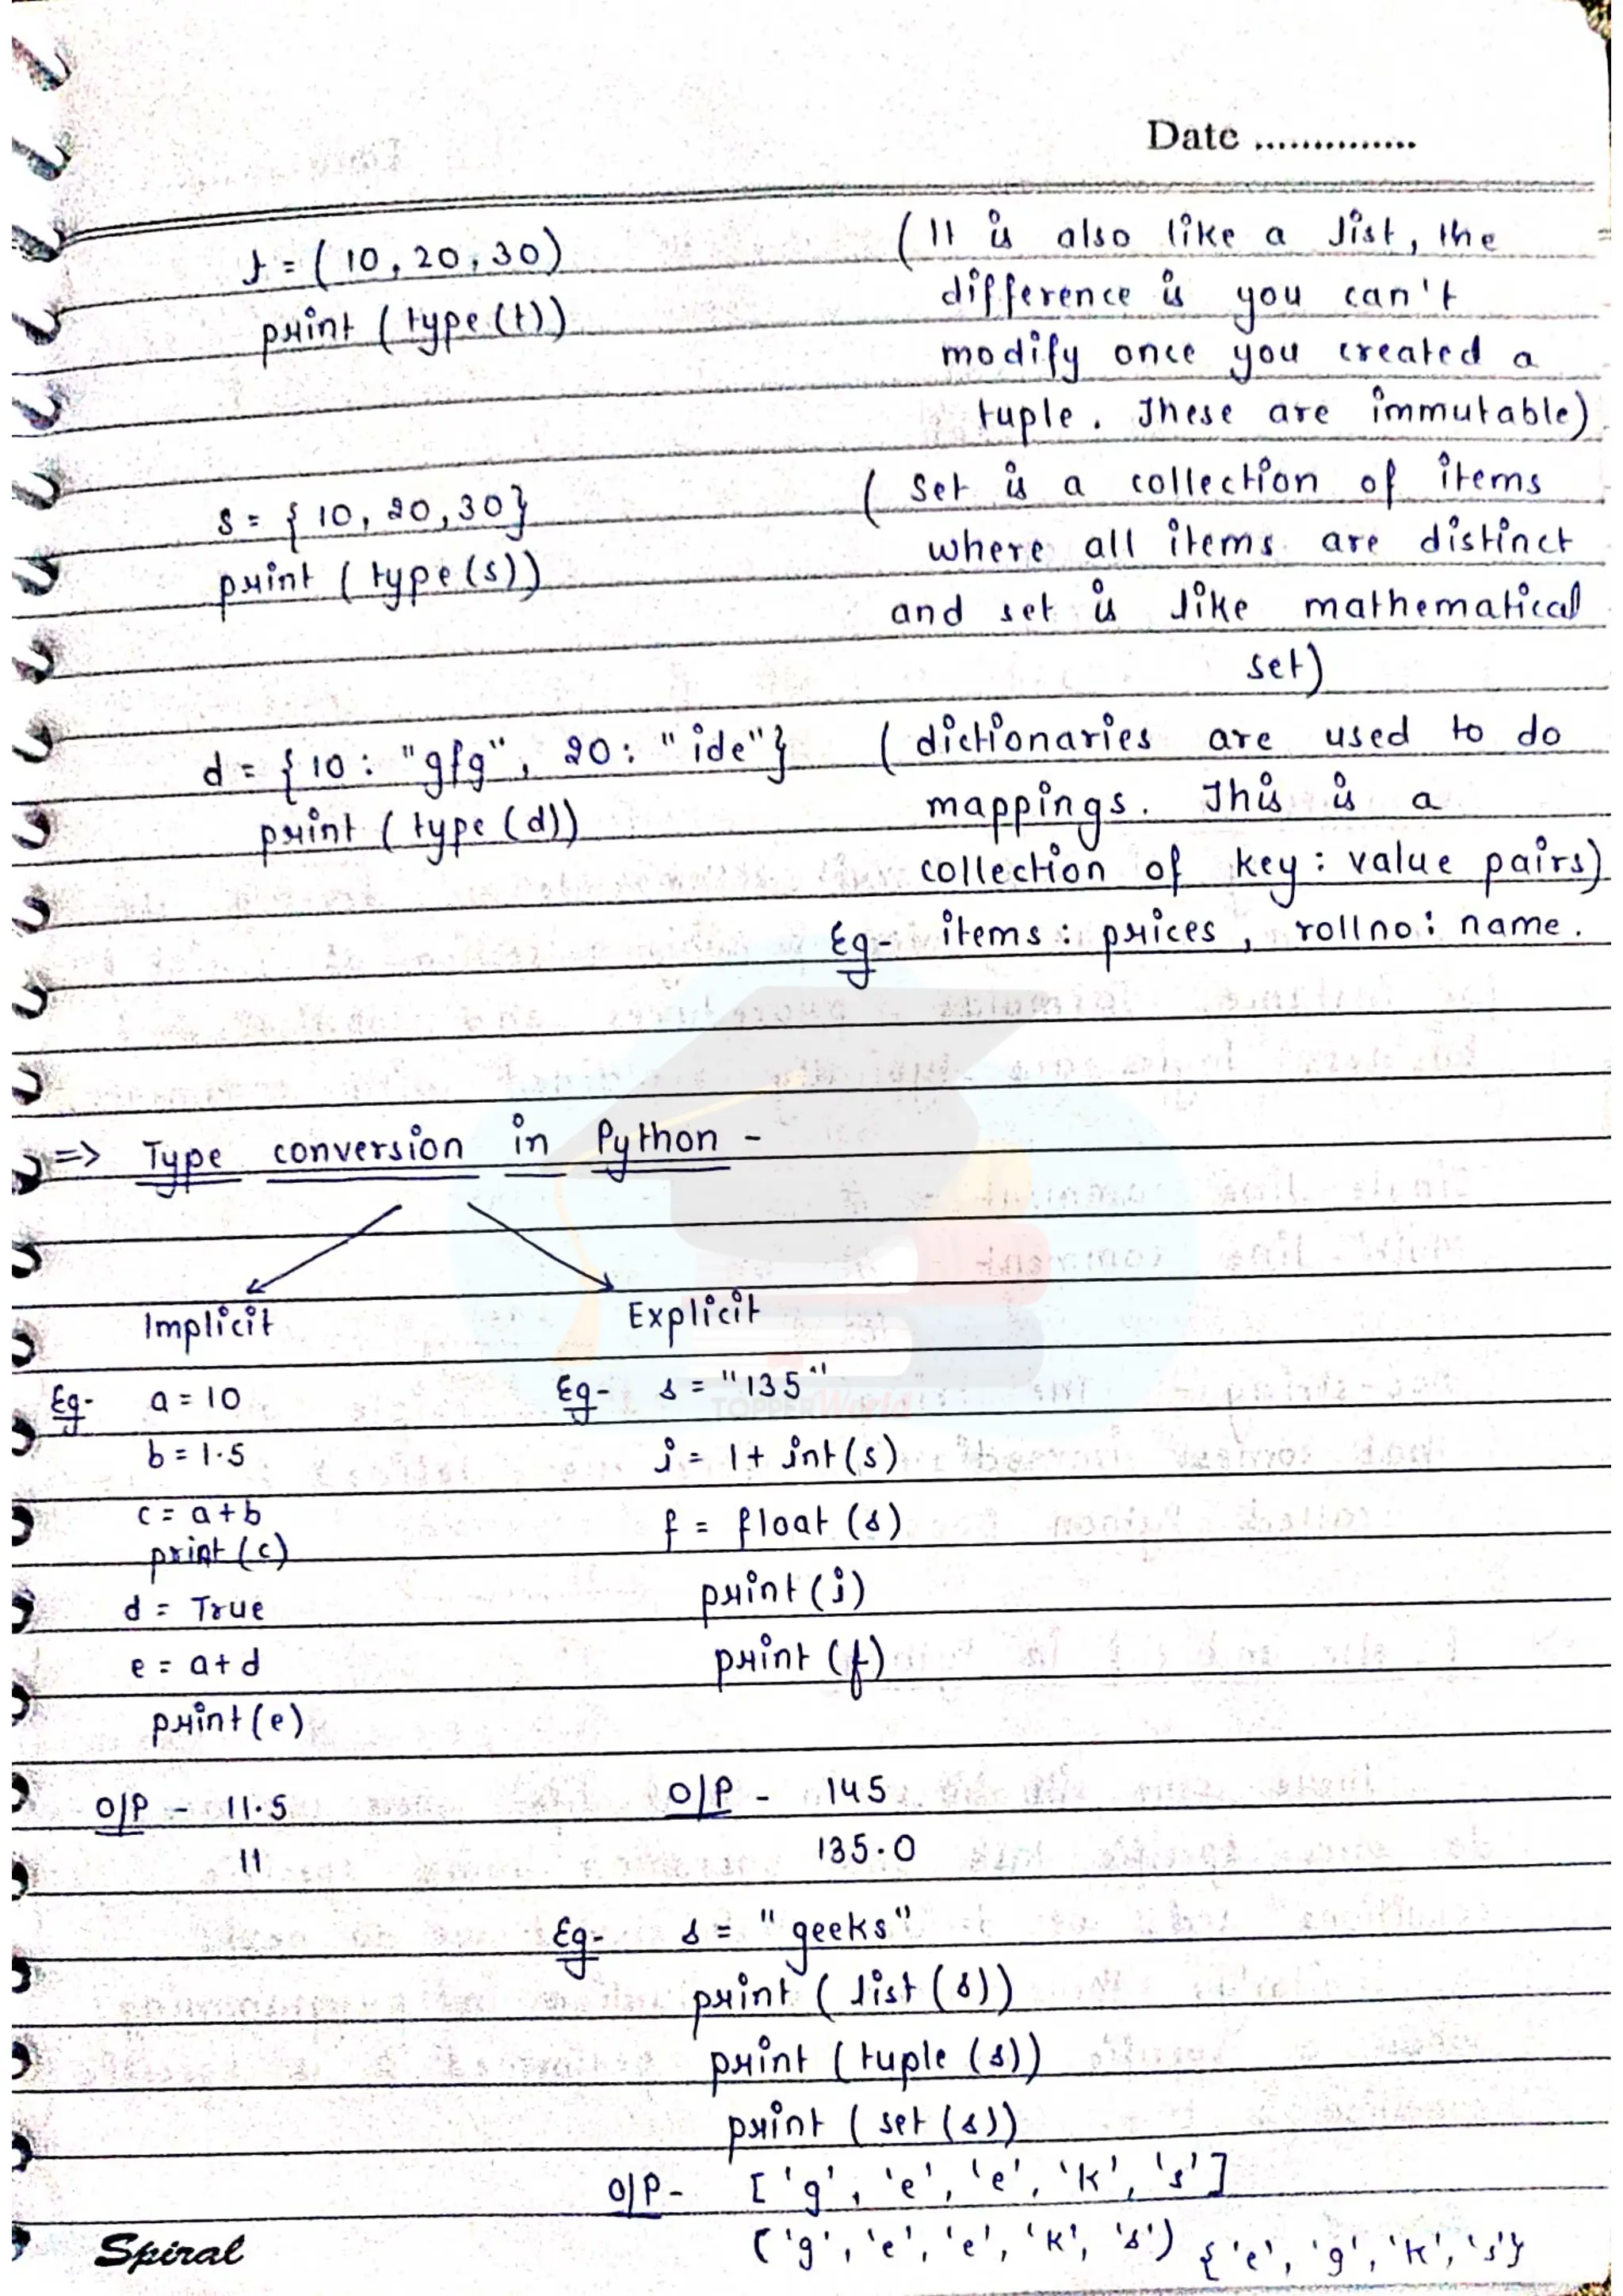 Date ..............
t = (10, 20, 30)
print (type(t))
(It is also like a list, the
difference is you can't
modify once you created a
tuple. These are immutable)
s = {10, 20, 30}
print (type(s))
(Set is a collection of items
where all items are distinct
and set is like mathematical
set)
d = {10: "gfg", 20: "ide"}
print (type(d))
(dictionaries are used to do
mappings. This is a
collection of key: value pairs)
Eg- items: prices, rollno: name.
=> Type conversion in Python -
Implicit
Eg- a = 10
b = 1.5
c = a+b
print (c)
d = True
e = a+d
print(e)
O/P - 11.5
11
Explicit
Eg- s = "135"
i = 1+ int(s)
f = float (s)
print(i)
print (f)
O/P - 145
135.0
Eg- s = "geeks"
print (list (s))
print (tuple (s))
print (set (s))
O/P- ['g', 'e', 'e', 'k', 's']
('g', 'e', 'e', 'k', 's') {'e', 'g', 'k', 's'}
TOPPERWorld
Spiral